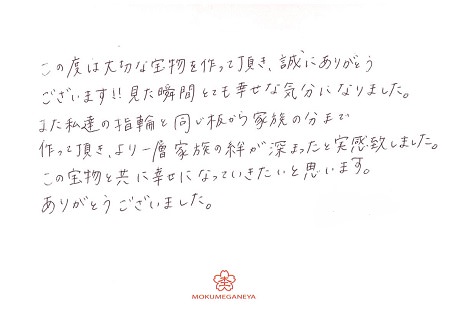 この度は大切な宝物を作って頂き、誠にありがとう
ございます!!見た瞬間とても幸せな気分になりました。
また私達の指輪と同じ板から家族の分まで
作って頂き、より一層家族の絆が深まったと実感致しました。
この宝物と共に幸せになっていきたいと思います。
ありがとうございました。
MOKUMEGANEYA